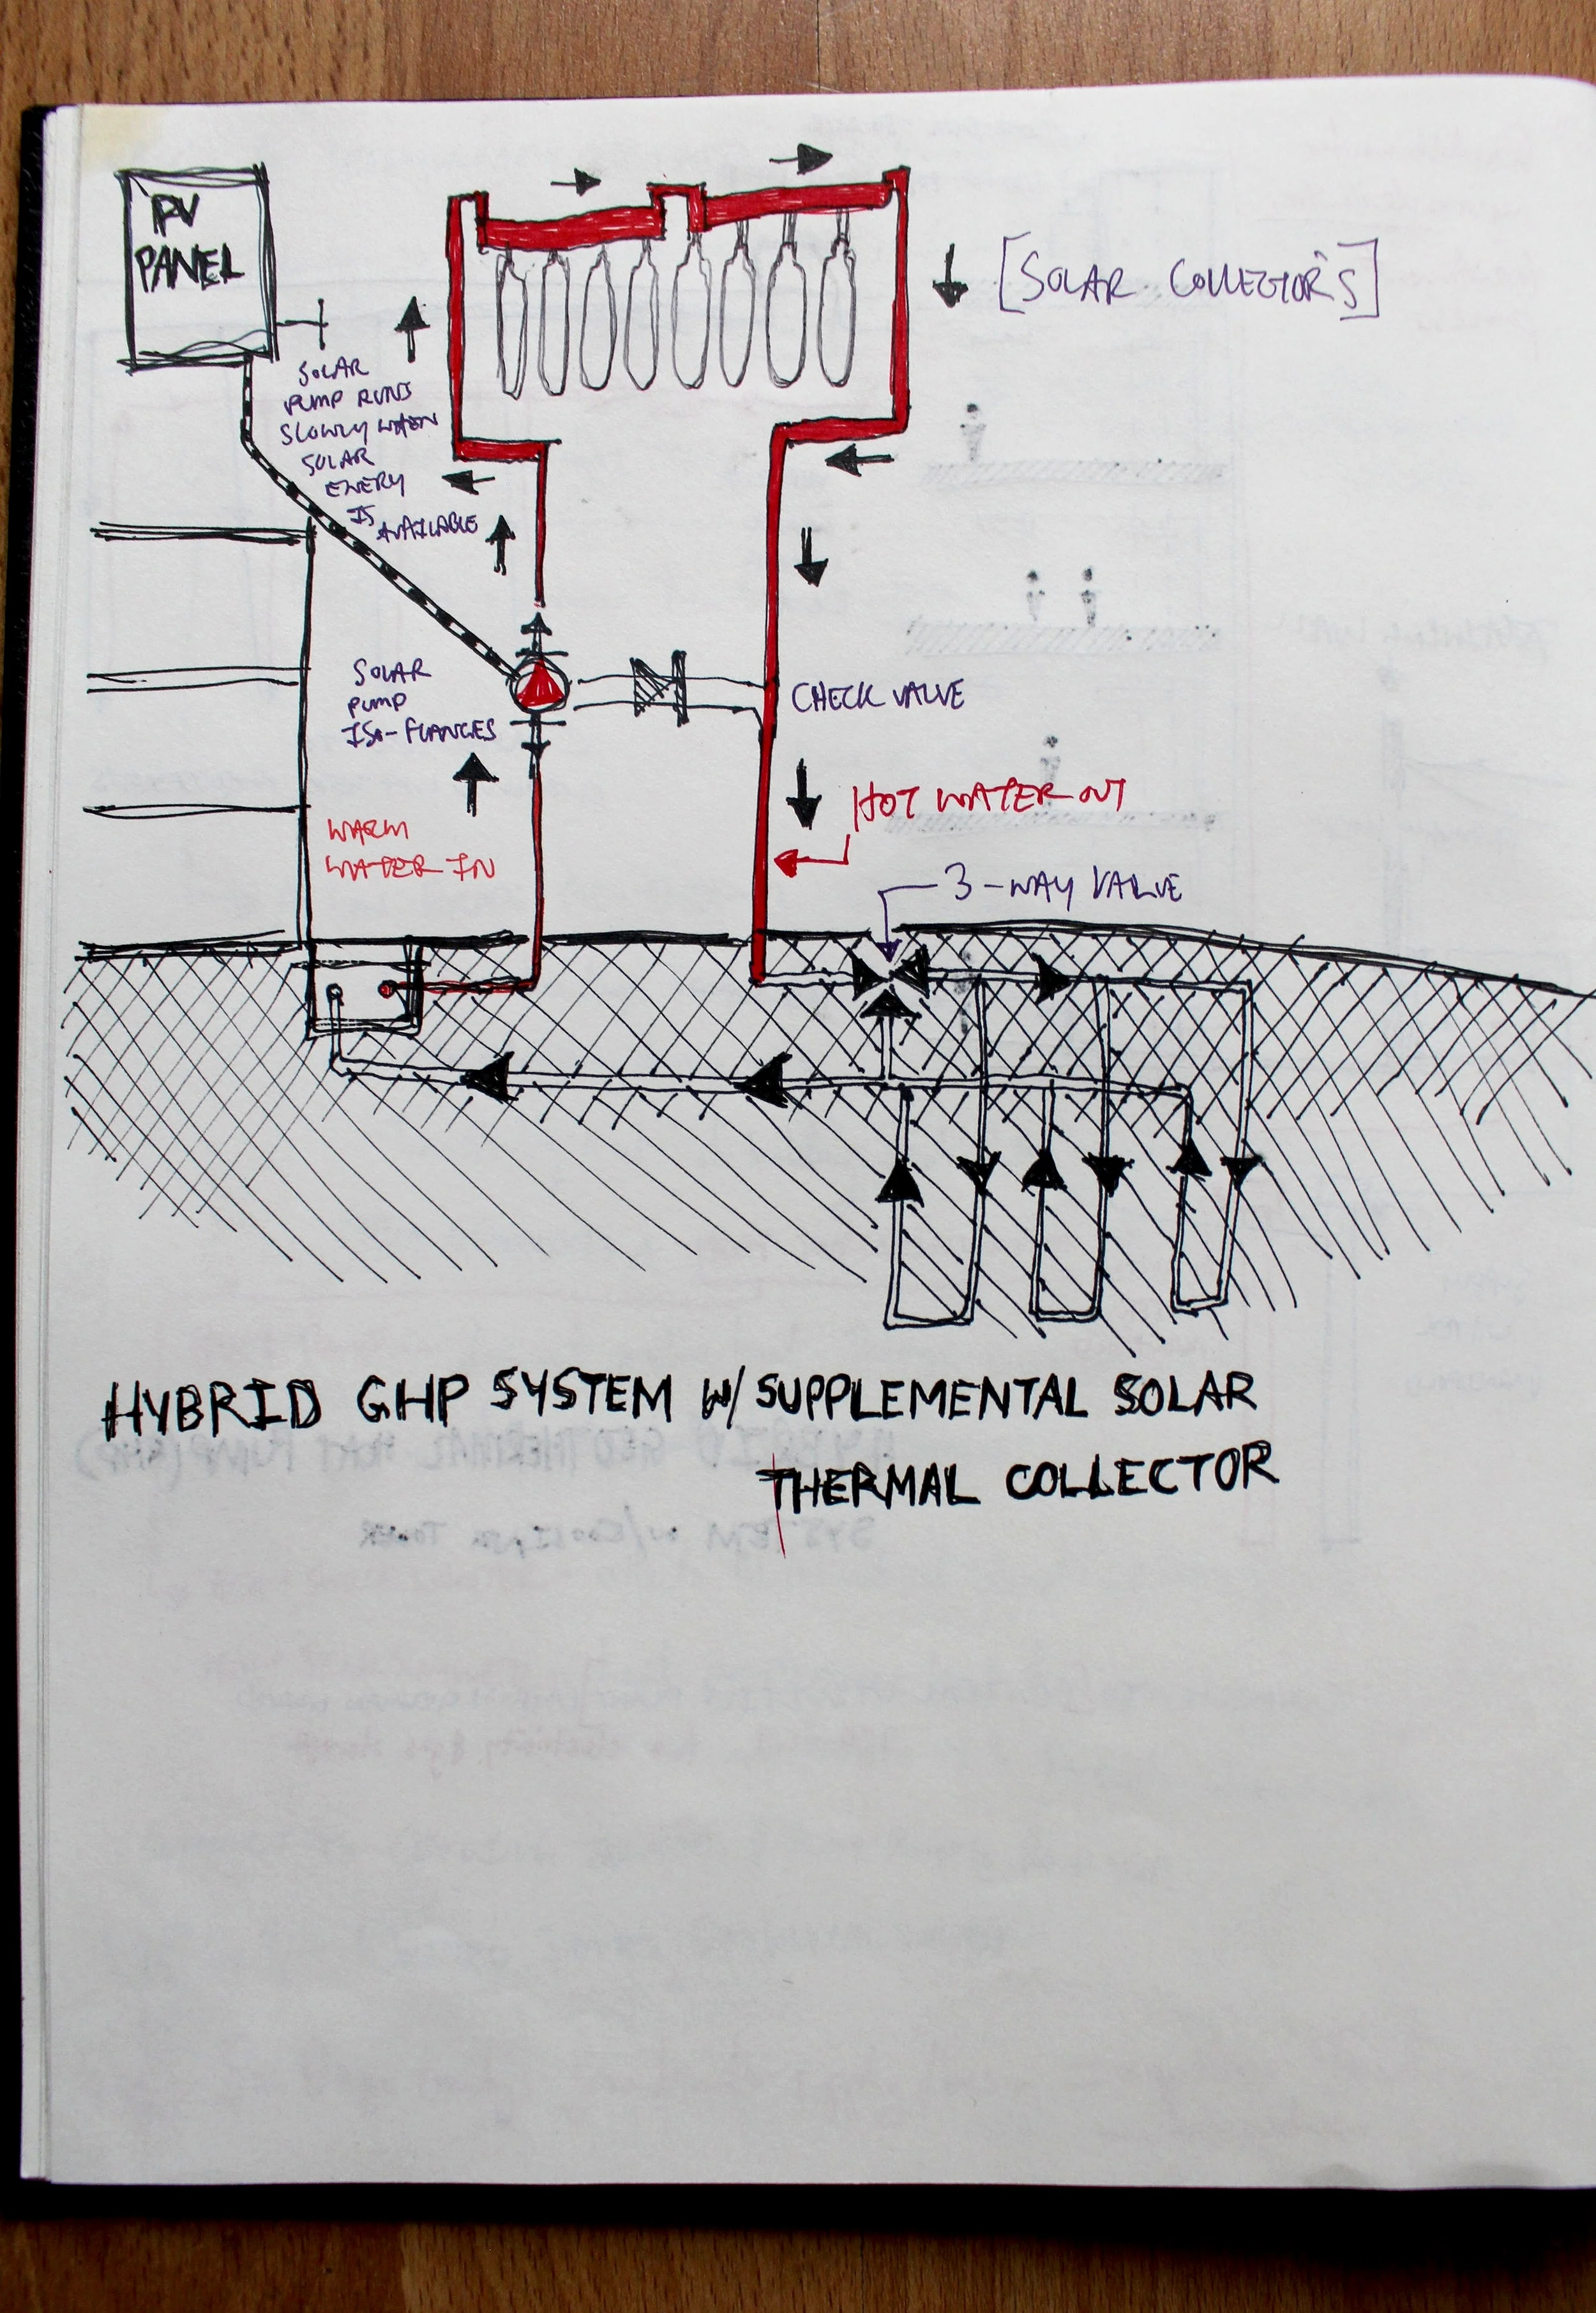 PV
PANEL
[SOLAR COLLECTORS]
SOLAR
PUMP RUNS
SLOWLY WHEN
SOLAR
ENERY
IS
AVAILABLE
SOLAR
PUMP
ISO-FLANGES
CHECK VALVE
HOT WATER OUT
WARM
WATER IN
3-WAY VALVE
HYBRID GHP SYSTEM W/ SUPPLEMENTAL SOLAR
THERMAL COLLECTOR